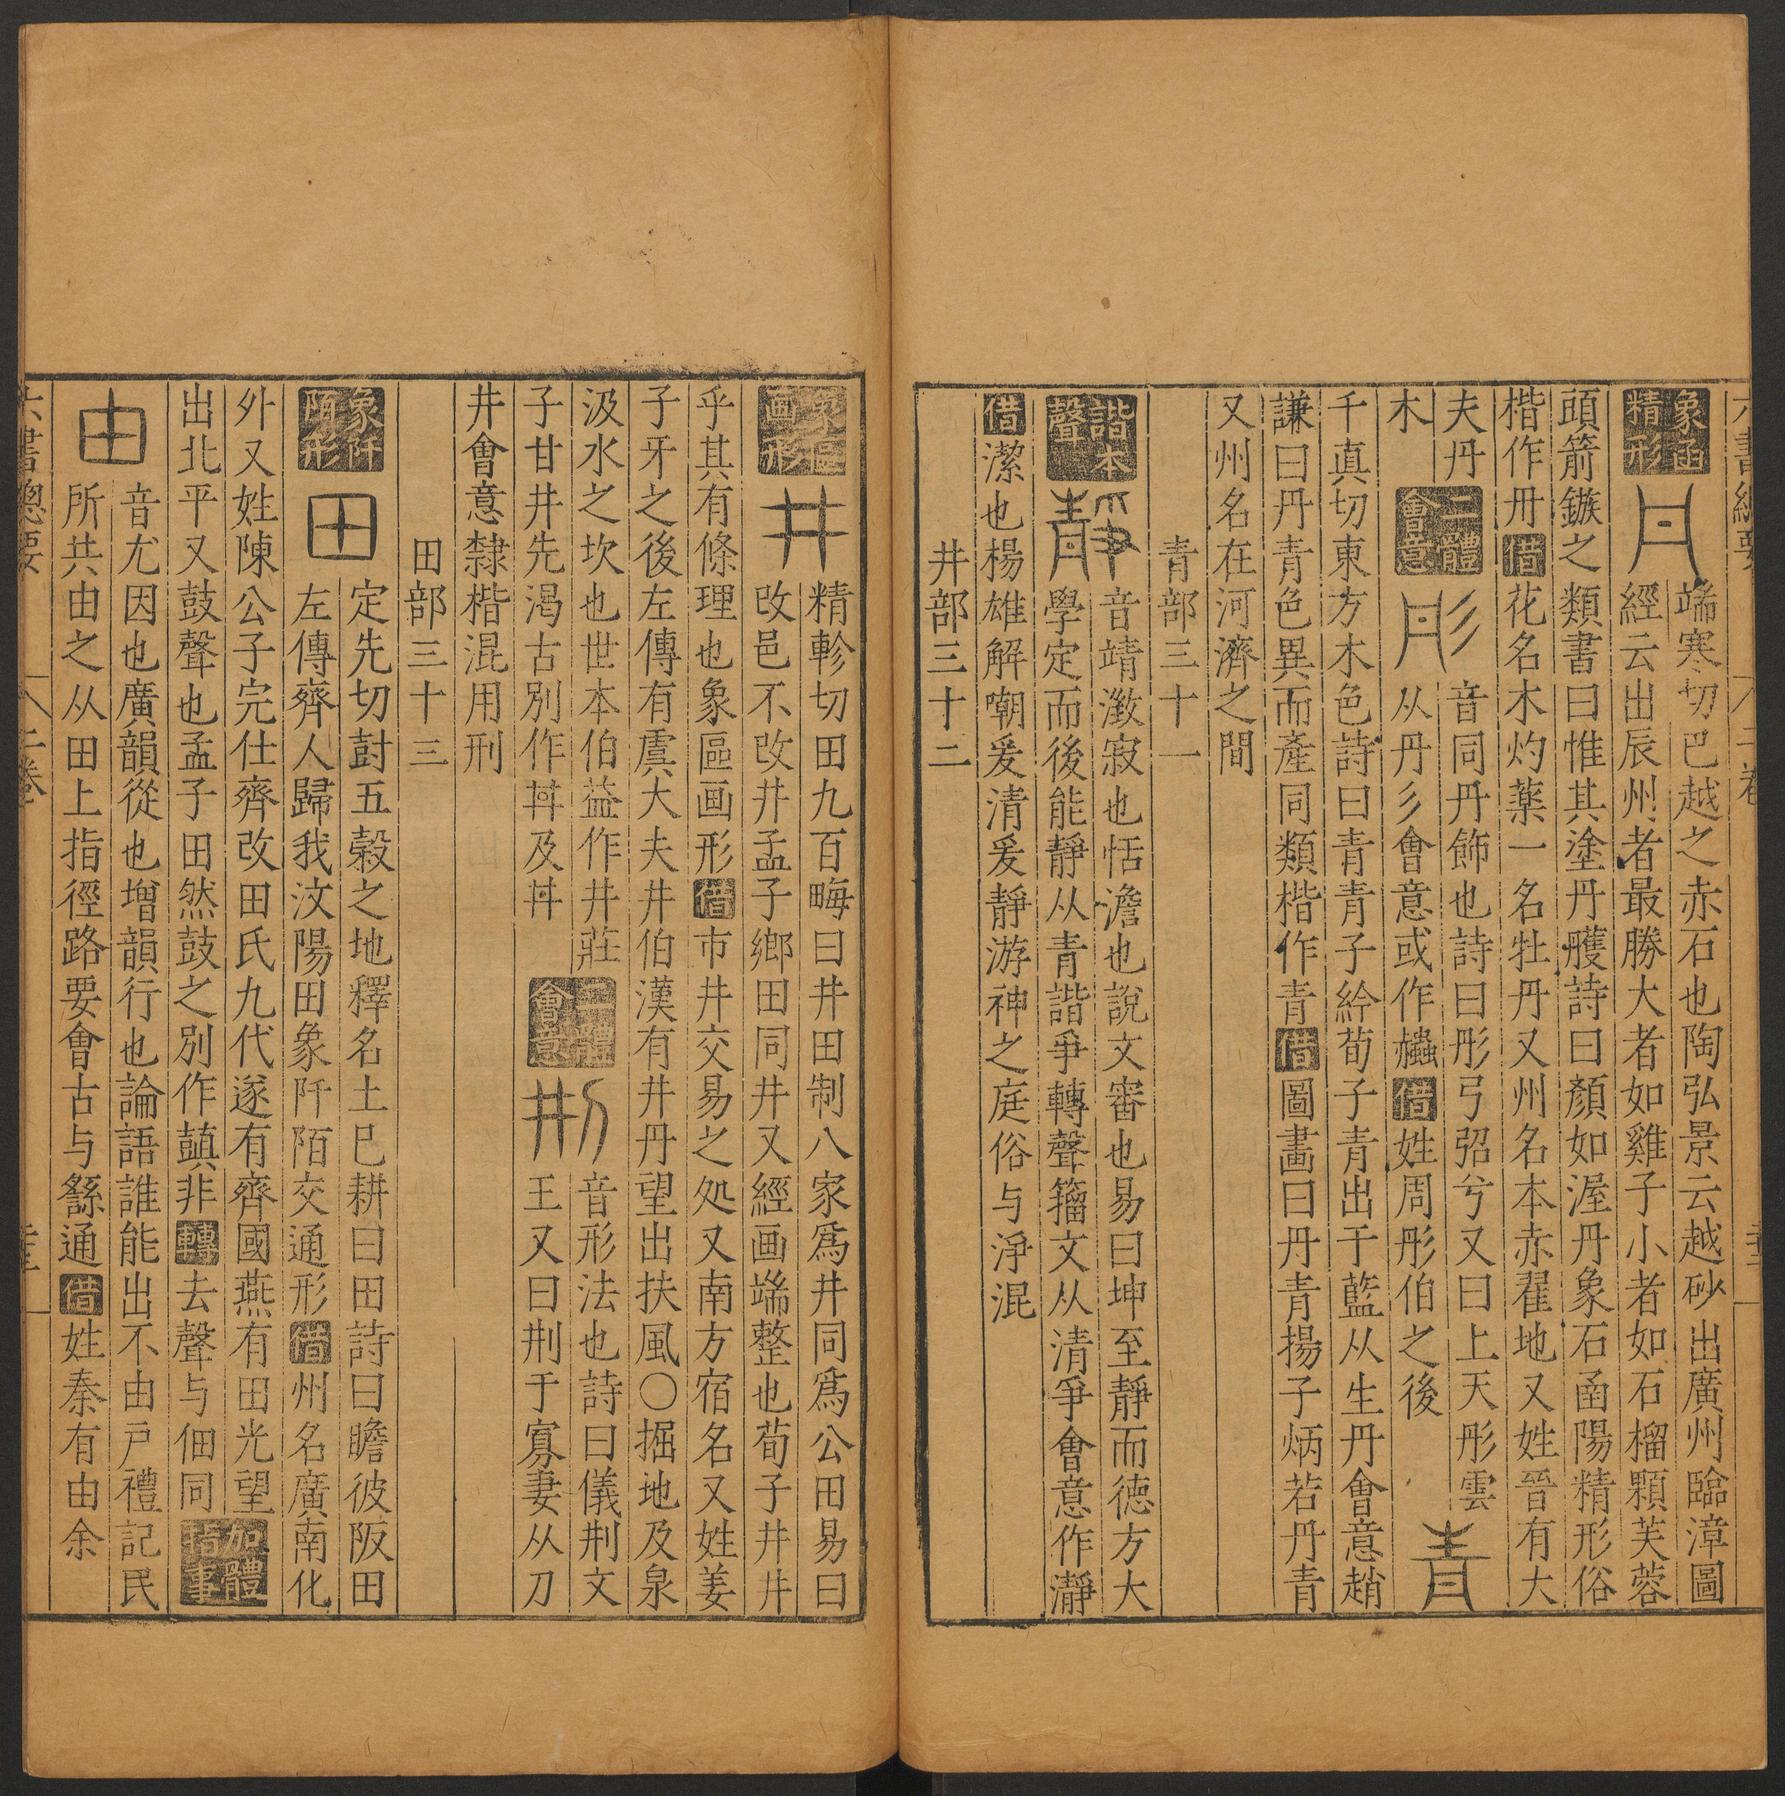 象函
精形
端寒切巴越之赤石也陶弘景云越砂出廣州臨漳圖
經云出辰州者最勝大者如雞子小者如石榴顆芙蓉
頭箭鏃之類書曰惟其塗丹雘詩曰顏如渥丹象石函陽精形俗
楷作丹借花名木灼藥一名牡丹又州名本赤翟地又姓晉有大
夫丹
木
二體
會意
音同丹飾也詩曰彤弓弨兮又曰上天彤雲
从丹彡會意或作赨借姓周彤伯之後
青
千真切東方木色詩曰青青子紟荀子青出于藍从生丹會意趙
謙曰丹青色異而產同類楷作青借圖畫曰丹青揚子炳若丹青
又州名在河濟之間
青部三十一
諧本
聲
靜
音靖瀓寂也恬澹也說文審也易曰坤至靜而德方大
學定而後能靜从青諧爭轉聲籀文从清爭會意作瀞
借潔也楊雄解嘲爰清爰靜游神之庭俗与淨混
井部三十二
象區
画形
井
精軫切田九百畮曰井田制八家為井同為公田易曰
改邑不改井孟子鄉田同井又經画端整也荀子井井
乎其有條理也象區画形借市井交易之処又南方宿名又姓姜
子牙之後左傳有虞大夫井伯漢有井丹望出扶風〇掘地及泉
汲水之坎也世本伯益作井莊
子甘井先渴古別作丼及丼
二體
會意
刑
音形法也詩曰儀刑文
王又曰刑于寡妻从刀
井會意隸楷混用刑
田部三十三
象阡
陌形
田
定先切尌五穀之地釋名土巳耕曰田詩曰瞻彼阪田
左傳齊人歸我汶陽田象阡陌交通形借州名廣南化
外又姓陳公子完仕齊改田氏九代遂有齊國燕有田光望
出北平又鼓聲也孟子田然鼓之別作䵄非轉去聲与佃同
加體
指事
由
音尤因也廣韻從也增韻行也論語誰能出不由戸禮記民
所共由之从田上指徑路要會古与繇通借姓秦有由余
六書總要
二卷